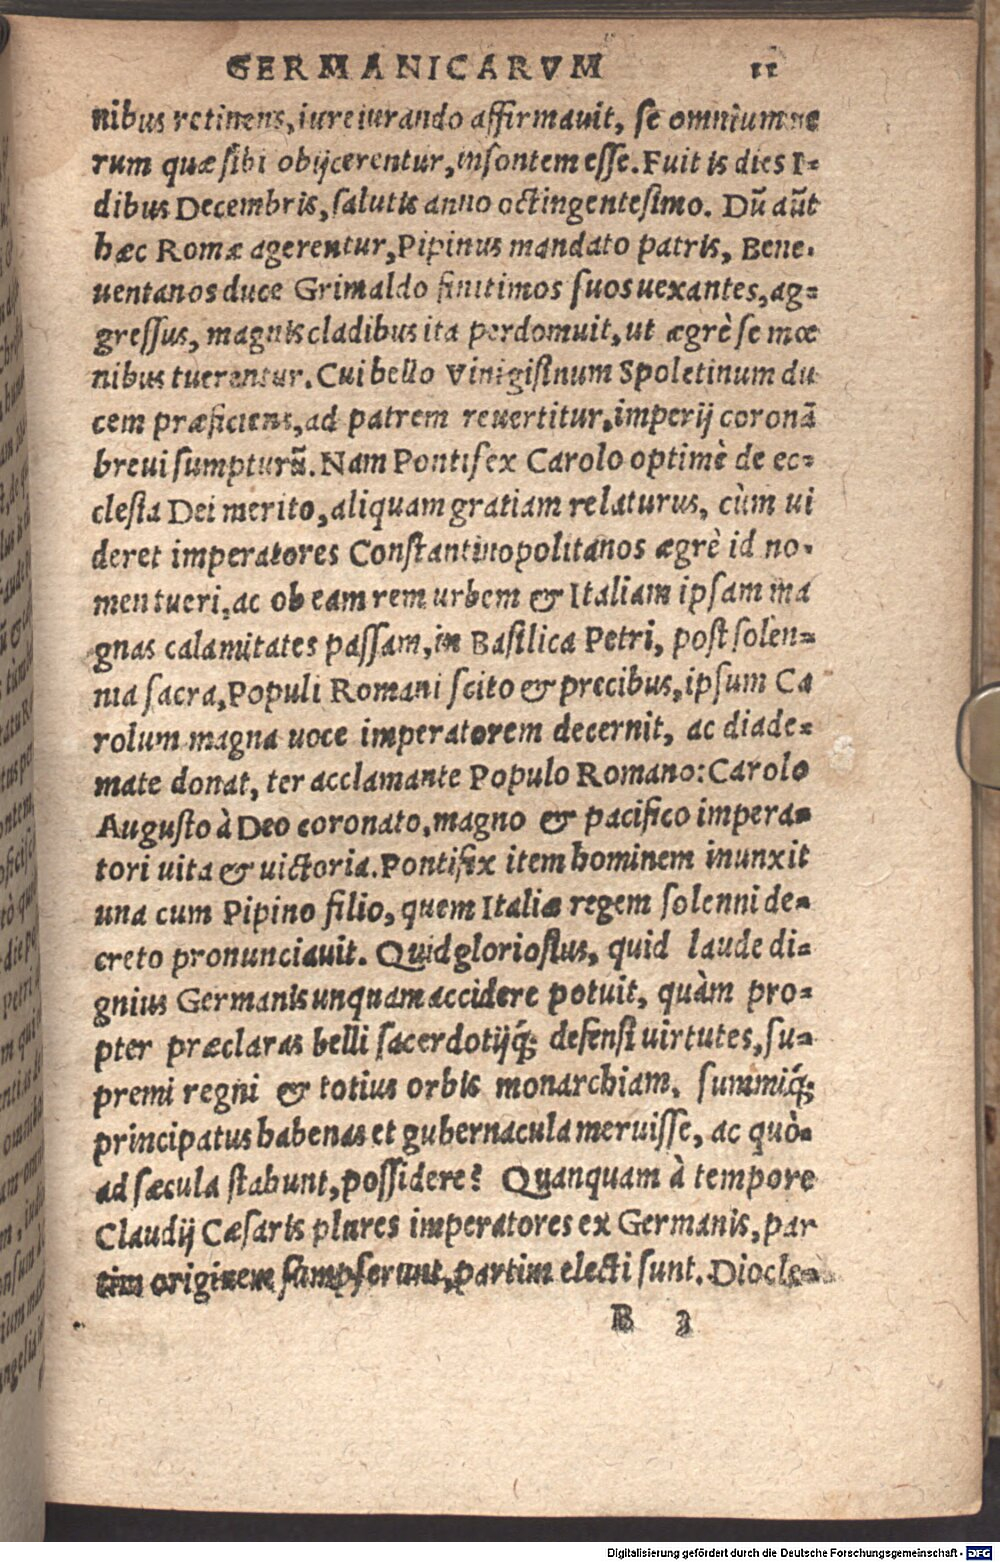 GERMANICARVM 11
nibus retinens, iureiurando affirmauit, ſe omnium ne
rum quæ ſibi obijcerentur, inſontem eſſe. Fuit is dies I⸗
dibus Decembris, ſalutis anno octingenteſimo. Dũ aũt
hæc Romæ agerentur, Pipinus mandato patris, Bene⸗
uentanos duce Grimaldo finitimos ſuos uexantes, ag⸗
greſſus, magnis cladibus ita perdomuit, ut ægrè ſe mœ
nibus tuerentur. Cui bello Vinigiſinum Spoletinum du
cem præficiens, ad patrem reuertitur, imperij coronã
breui ſumpturũ. Nam Pontifex Carolo optimè de ec⸗
cleſia Dei merito, aliquam gratiam relaturus, cùm ui
deret imperatores Conſtantinopolitanos ægrè id no⸗
men tueri, ac ob eam rem urbem & Italiam ipſam ma
gnas calamitates paſſam, in Baſilica Petri, poſt ſolen⸗
nia ſacra, Populi Romani ſcito & precibus, ipſum Ca
rolum magna uoce imperatorem decernit, ac diade⸗
mate donat, ter acclamante Populo Romano: Carolo
Auguſto à Deo coronato, magno & pacifico impera⸗
tori uita & uictoria. Pontifix item hominem inunxit
una cum Pipino filio, quem Italiæ regem ſolenni de⸗
creto pronunciauit. Quid glorioſius, quid laude di⸗
gnius Germanis unquam accidere potuit, quàm pro⸗
pter præclaras belli ſacerdotijq́; defenſi uirtutes, ſu⸗
premi regni & totius orbis monarchiam, ſummiq́;
principatus habenas et gubernacula meruiſſe, ac quò⸗
ad ſæcula ſtabunt, poſſidere? Quanquam à tempore
Claudij Cæſaris plures imperatores ex Germanis, par
tim originem ſumpſerunt, partim electi ſunt. Diocle⸗
B 3
Digitalisierung gefördert durch die Deutsche Forschungsgemeinschaft - DFG